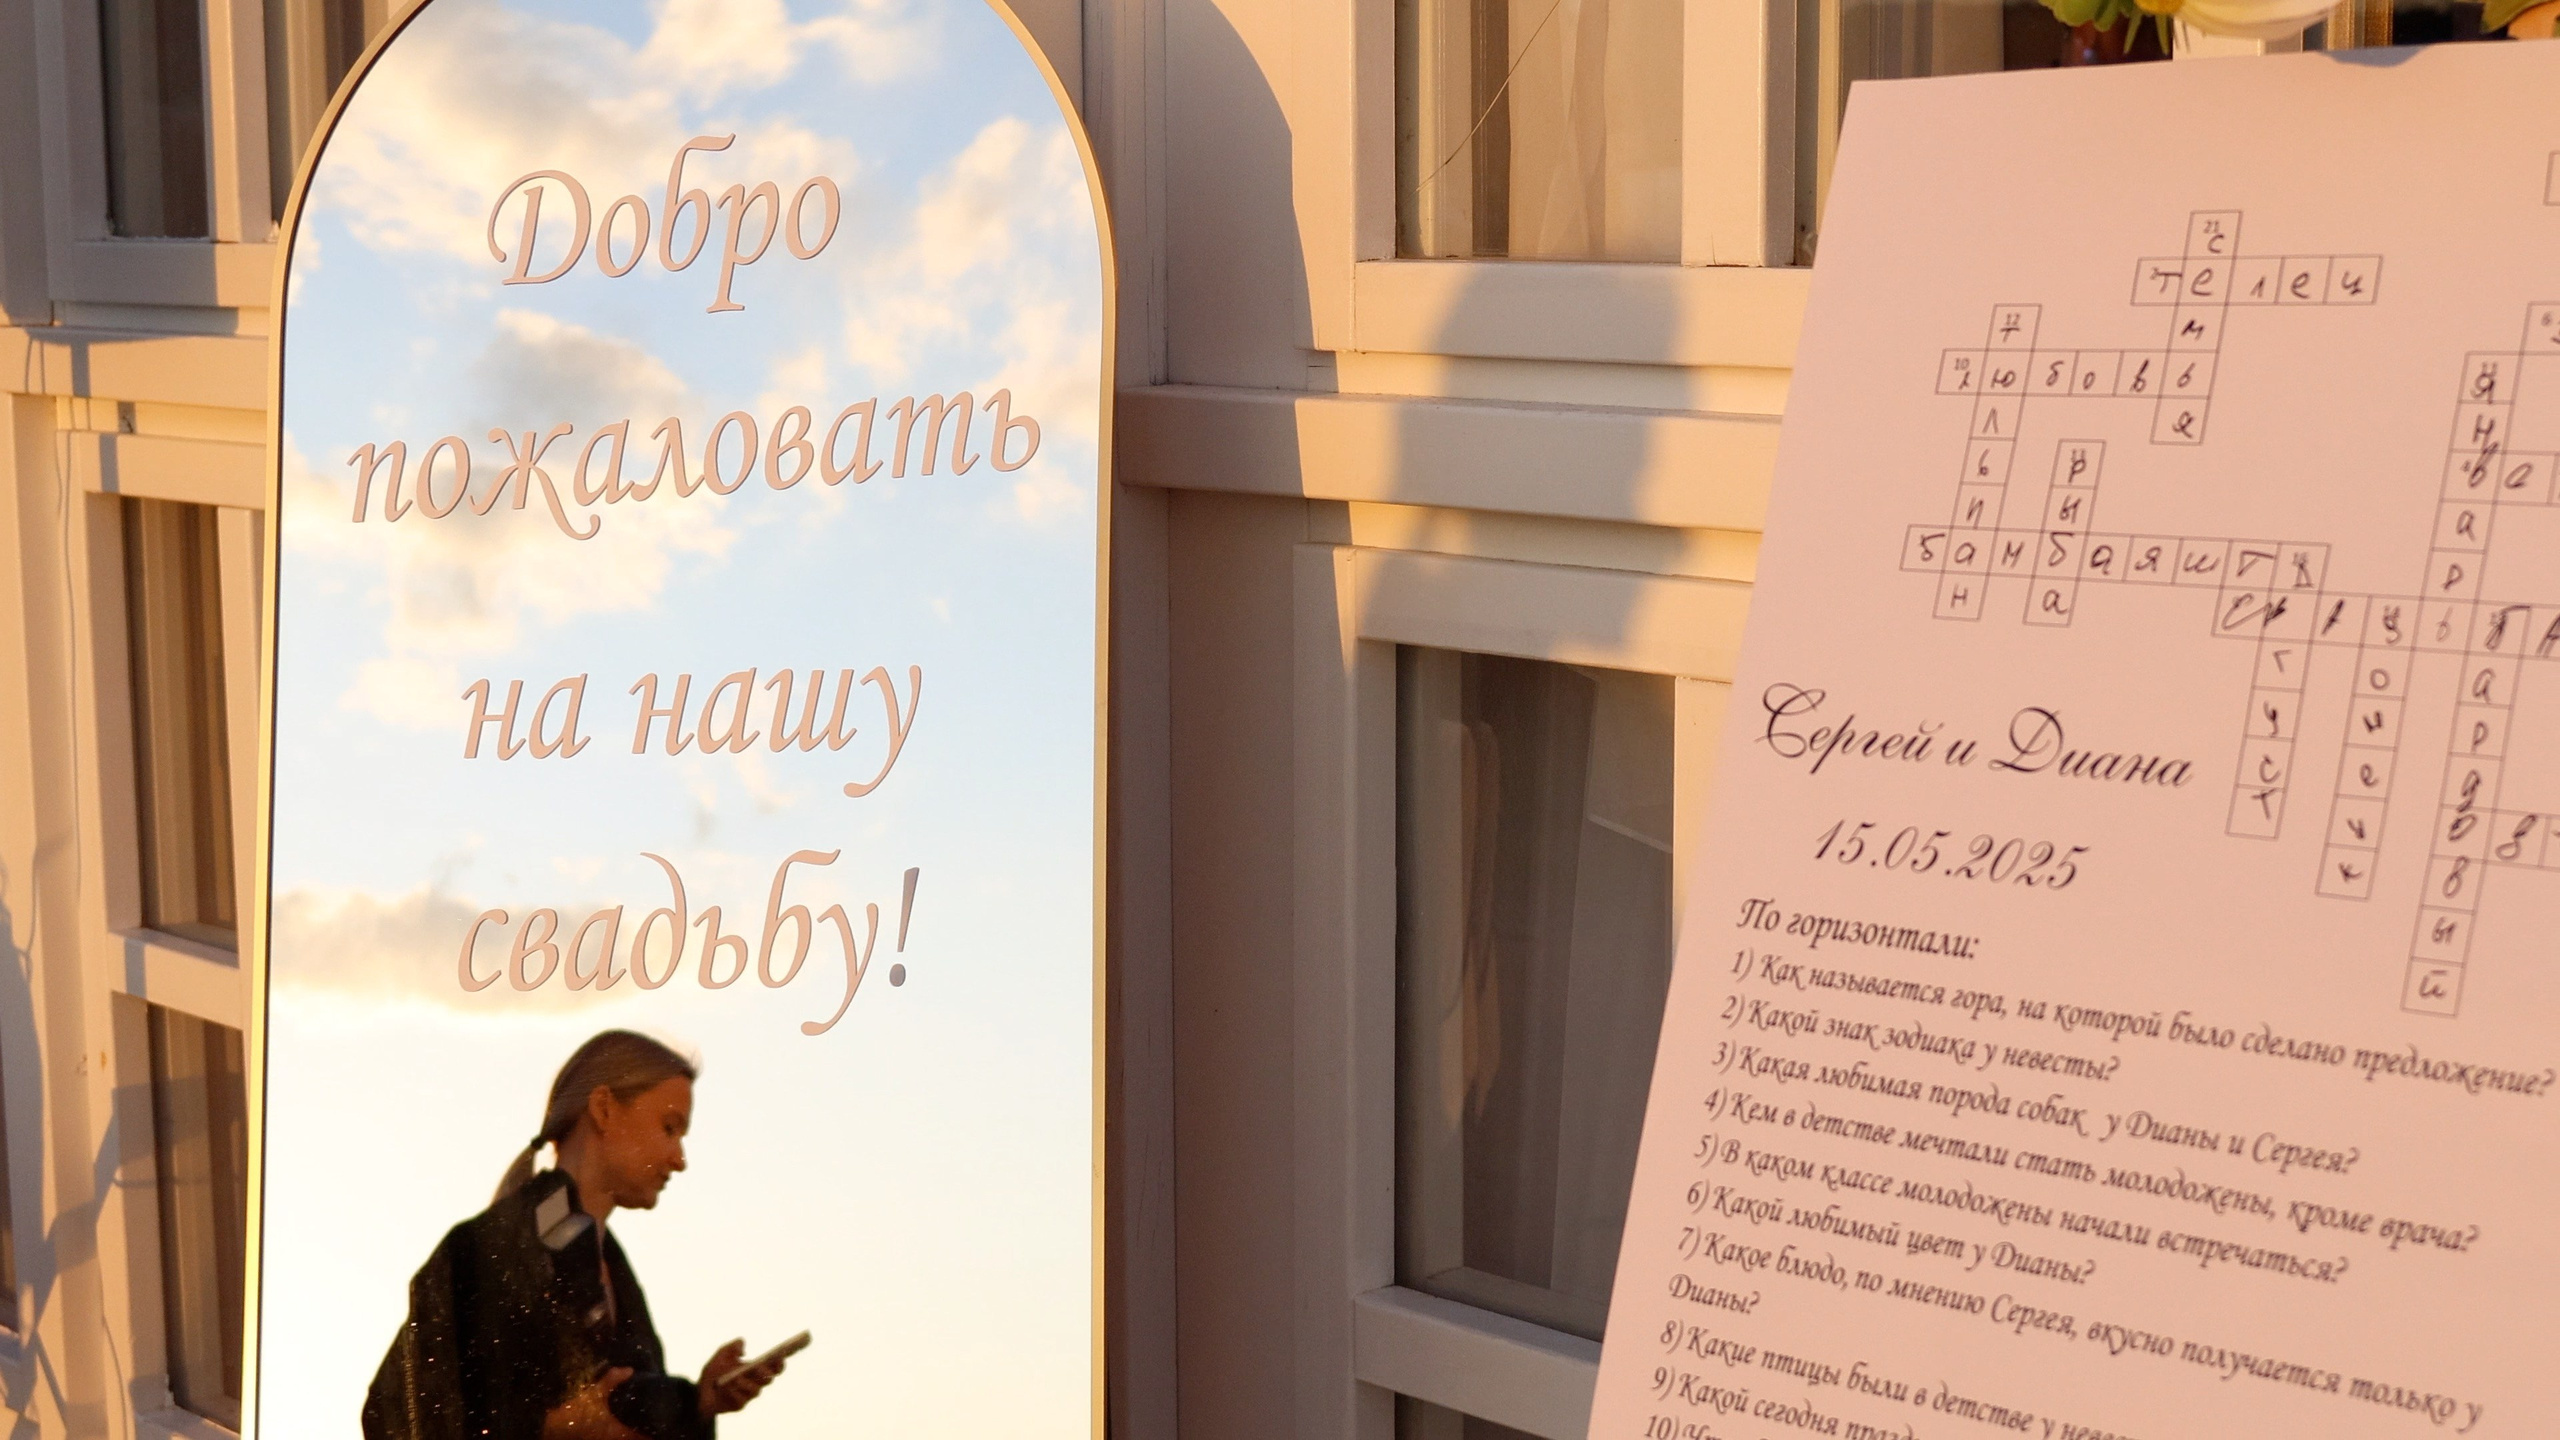 Добро
пожаловать
на нашу
свадьбу!
21
С
Телец
М
12
Т
10
Любовь
Л
Я
Ь
П
Р
Ы
бамбаяшт
Н
а
Январ
Август
Барbовый
Сергей и Диана
15.05.2025
По горизонтали:
1) Как называется гора, на которой было сделано предложение?
2) Какой знак зодиака у невесты?
3) Какая любимая порода собак у Дианы и Сергея?
4) Кем в детстве мечтали стать молодожены, кроме врача?
5) В каком классе молодожены начали встречаться?
6) Какой любимый цвет у Дианы?
7) Какое блюдо, по мнению Сергея, вкусно получается только у
Дианы?
8) Какие птицы были в детстве у
9) Какой сегодня
10)